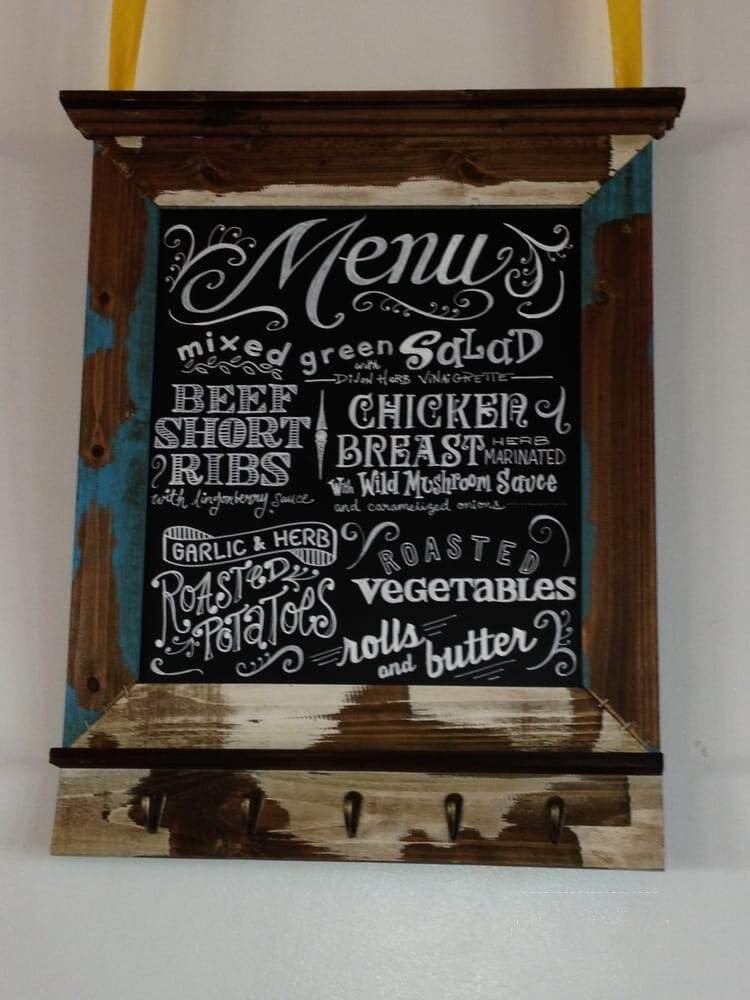 Menu
mixed green SaLaD
with
DIJON HERB VINAIGRETTE
BEEF
SHORT
RIBS
with lingonberry sauce
CHICKEN
BREAST HERB MARINATED
With Wild Mushroom Sauce
and caramelized onions
GARLIC & HERB
ROASTED
POTATOES
ROASTED
VEGETABLES
rolls
and butter